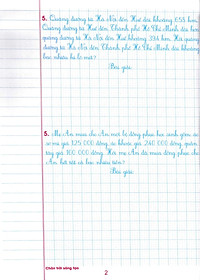 5. Quãng đường từ Hà Nội đến Huế dài khoảng 658 km.
Quãng đường từ Huế đến Thành phố Hồ Chí Minh dài hơn
quãng đường từ Hà Nội đến Huế khoảng 394 km. Hỏi quãng
đường từ Hà Nội đến Thành phố Hồ Chí Minh dài khoảng
bao nhiêu ki lô mét?
Bài giải
5. Mẹ An mua cho An một bộ đồng phục học sinh gồm áo
sơ mi giá 125 000 đồng, áo khoác giá 240 000 đồng, quần
tây giá 160 000 đồng. Hỏi mẹ An đã mua đồng phục cho
An hết tất cả bao nhiêu tiền?
Bài giải
Chân trời sáng tạo
2